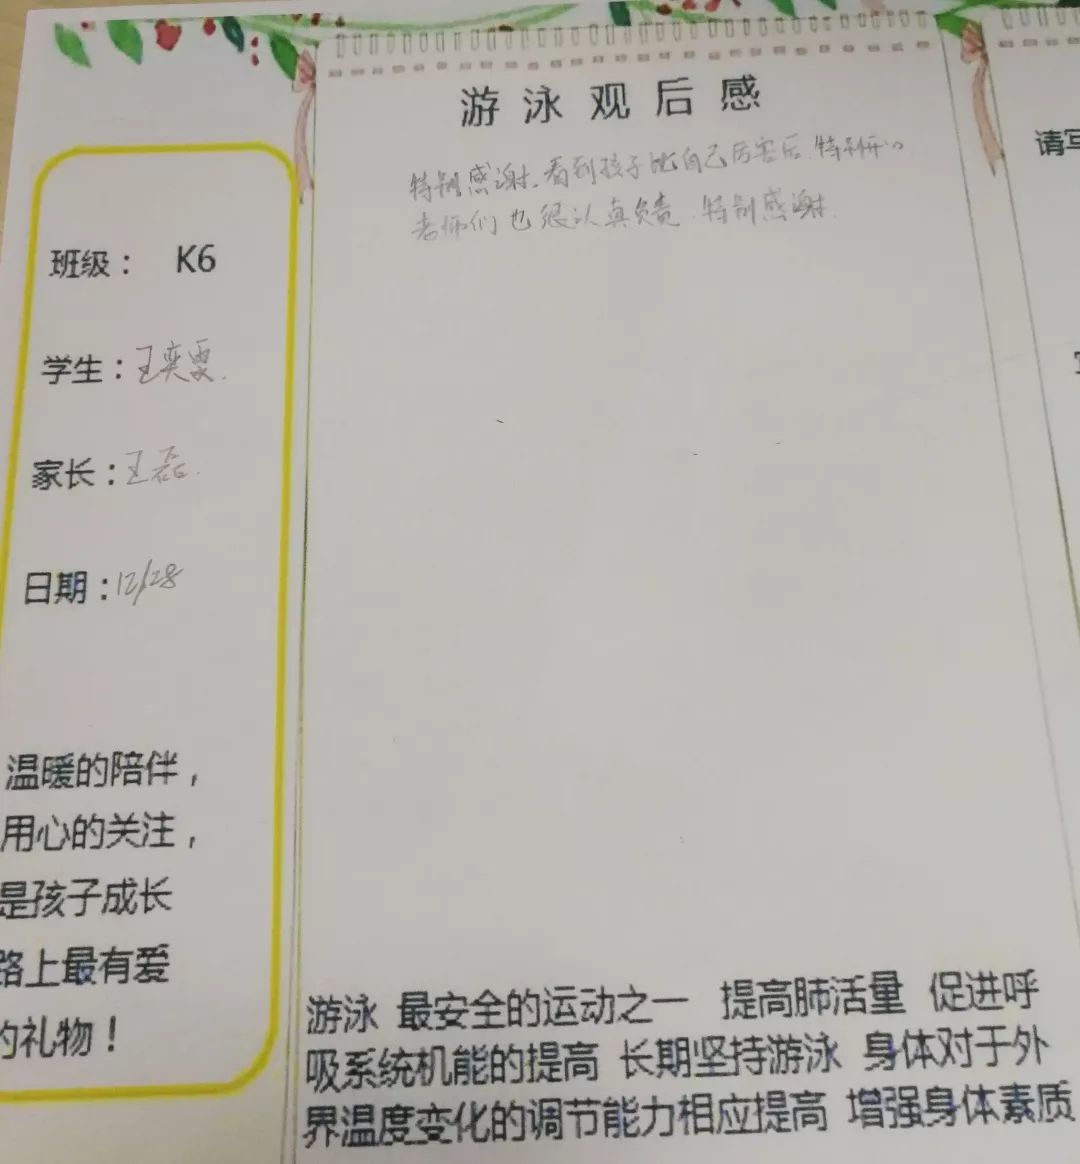 班级： K6
学生：王奕雯.
家长：王磊.
日期：12/28
温暖的陪伴，
用心的关注，
是孩子成长
路上最有爱
的礼物！
游泳观后感
特别感谢.看到孩子比自己厉害后.特别开心
老师们也很认真负责.特别感谢.
游泳 最安全的运动之一 提高肺活量 促进呼
吸系统机能的提高 长期坚持游泳 身体对于外
界温度变化的调节能力相应提高 增强身体素质
请写